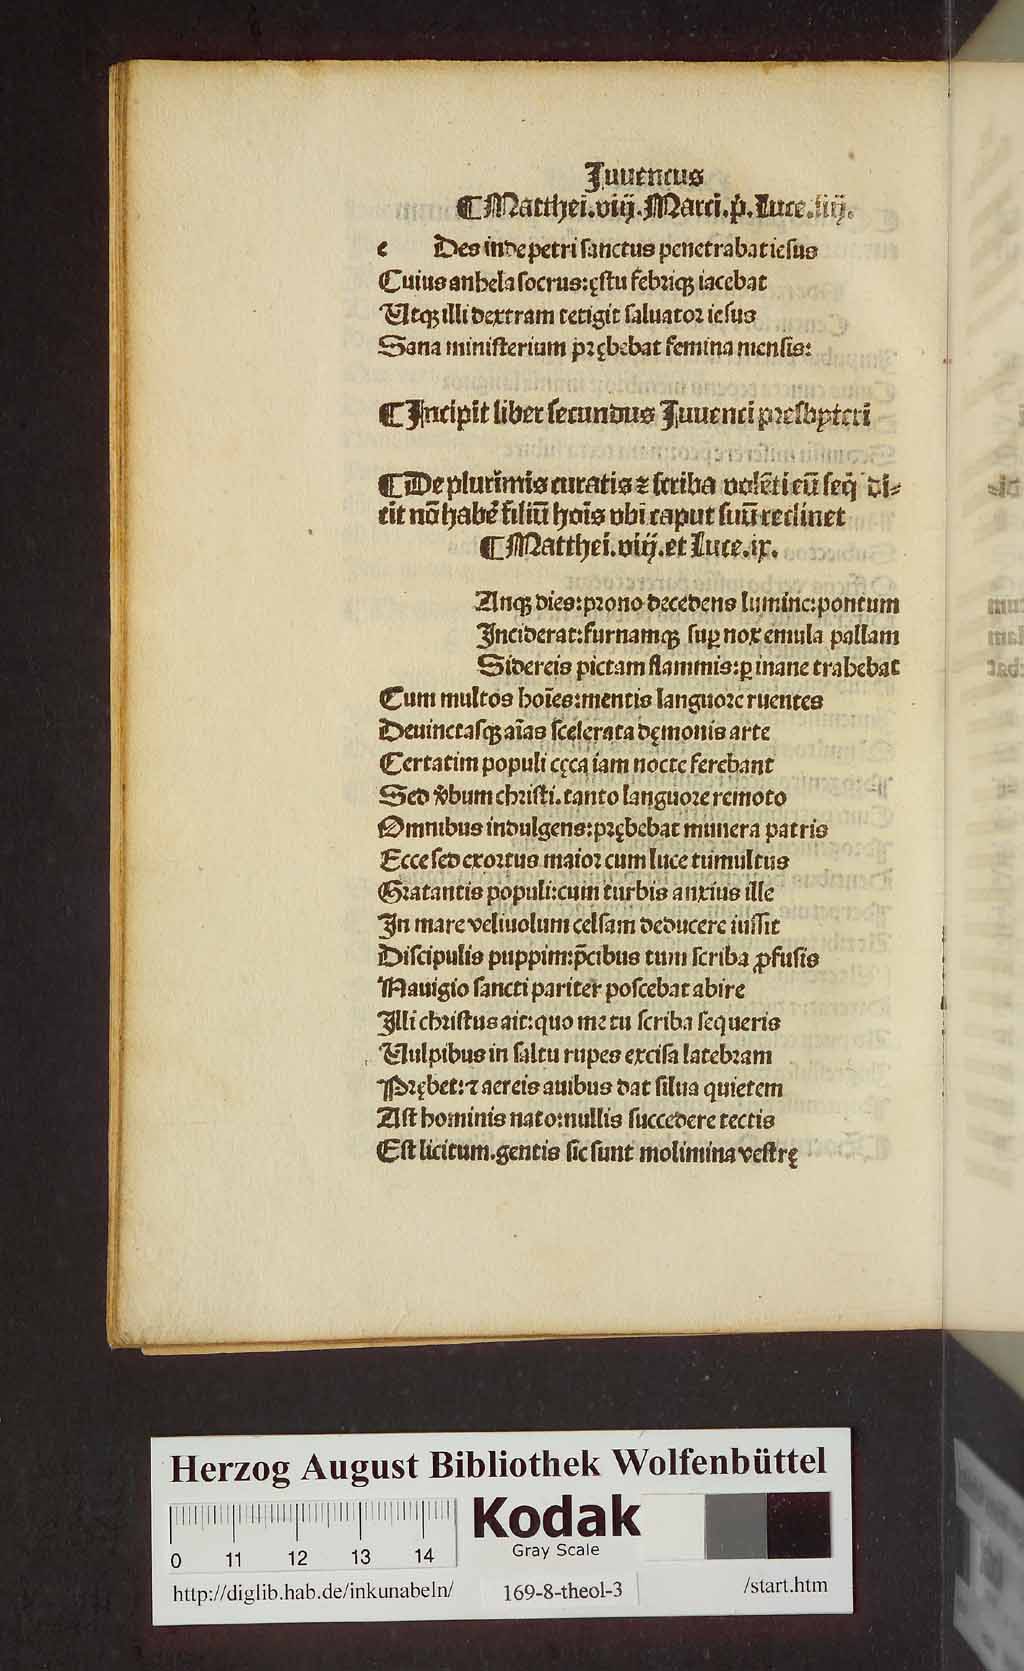 Juuencus
¶ Matthei.viij.Marci.p̄.Luce.iiij.
e Des inde petri sanctus penetrabat iesus
Cuius anhela socrus:ęstu febriqꝫ iacebat
Utqꝫ illi dextram tetigit saluator iesus
Sana ministerium pręhebat femina mensis:
¶ Incipit liber secundus Juuenci presbyteri
¶ De plurimis curatis ⁊ scriba volēti eū seq̄ di-
cit nō habē filiū hoīs vbi caput suū reclinet
¶ Matthei.viij.et Luce.ix.
Anqꝫ dies:prono decedens lumine:pontum
Inciderat:furnamqꝫ suꝑ nox emula pallam
Sidereis pictam flammis:ꝑ inane trahebat
Cum multos hoīes:mentis languore ruentes
Deuinctasqꝫ aīas scelerata dęmonis arte
Certatim populi cęca iam nocte ferebant
Sed v̄bum christi.tanto languore remoto
Omnibus indulgens:pręhebat munera patris
Ecce sed exortus maior cum luce tumultus
Gratantis populi:cum turbis anxius ille
In mare veliuolum celsam deducere iussit
Discipulis puppim:p̄cibus tum scriba ꝓfusis
Nauigio sancti pariter poscebat abire
Illi christus ait:quo me tu scriba sequeris
Uulpibus in saltu rupes excisa latebram
Pręhet:⁊ aereis auibus dat silua quietem
Ast hominis nato:nullis succedere tectis
Est licitum.gentis sic sunt molimina vestrę
Herzog August Bibliothek Wolfenbüttel
0 11 12 13 14
Kodak
Gray Scale
http://diglib.hab.de/inkunabeln/ 169-8-theol-3 /start.htm